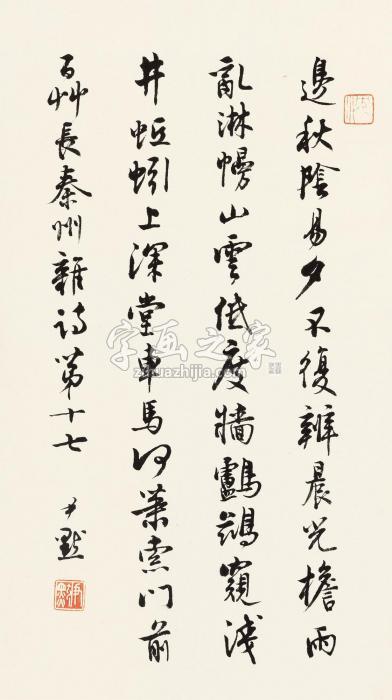 邊秋陰易夕不復辨晨光檐雨
亂淋幔山雲低度牆鸕鷀窺淺
井蚯蚓上深堂車馬何蕭索門前
百艸長秦州雜詩第十七 尹默
字画之家
zihuazhijia.com